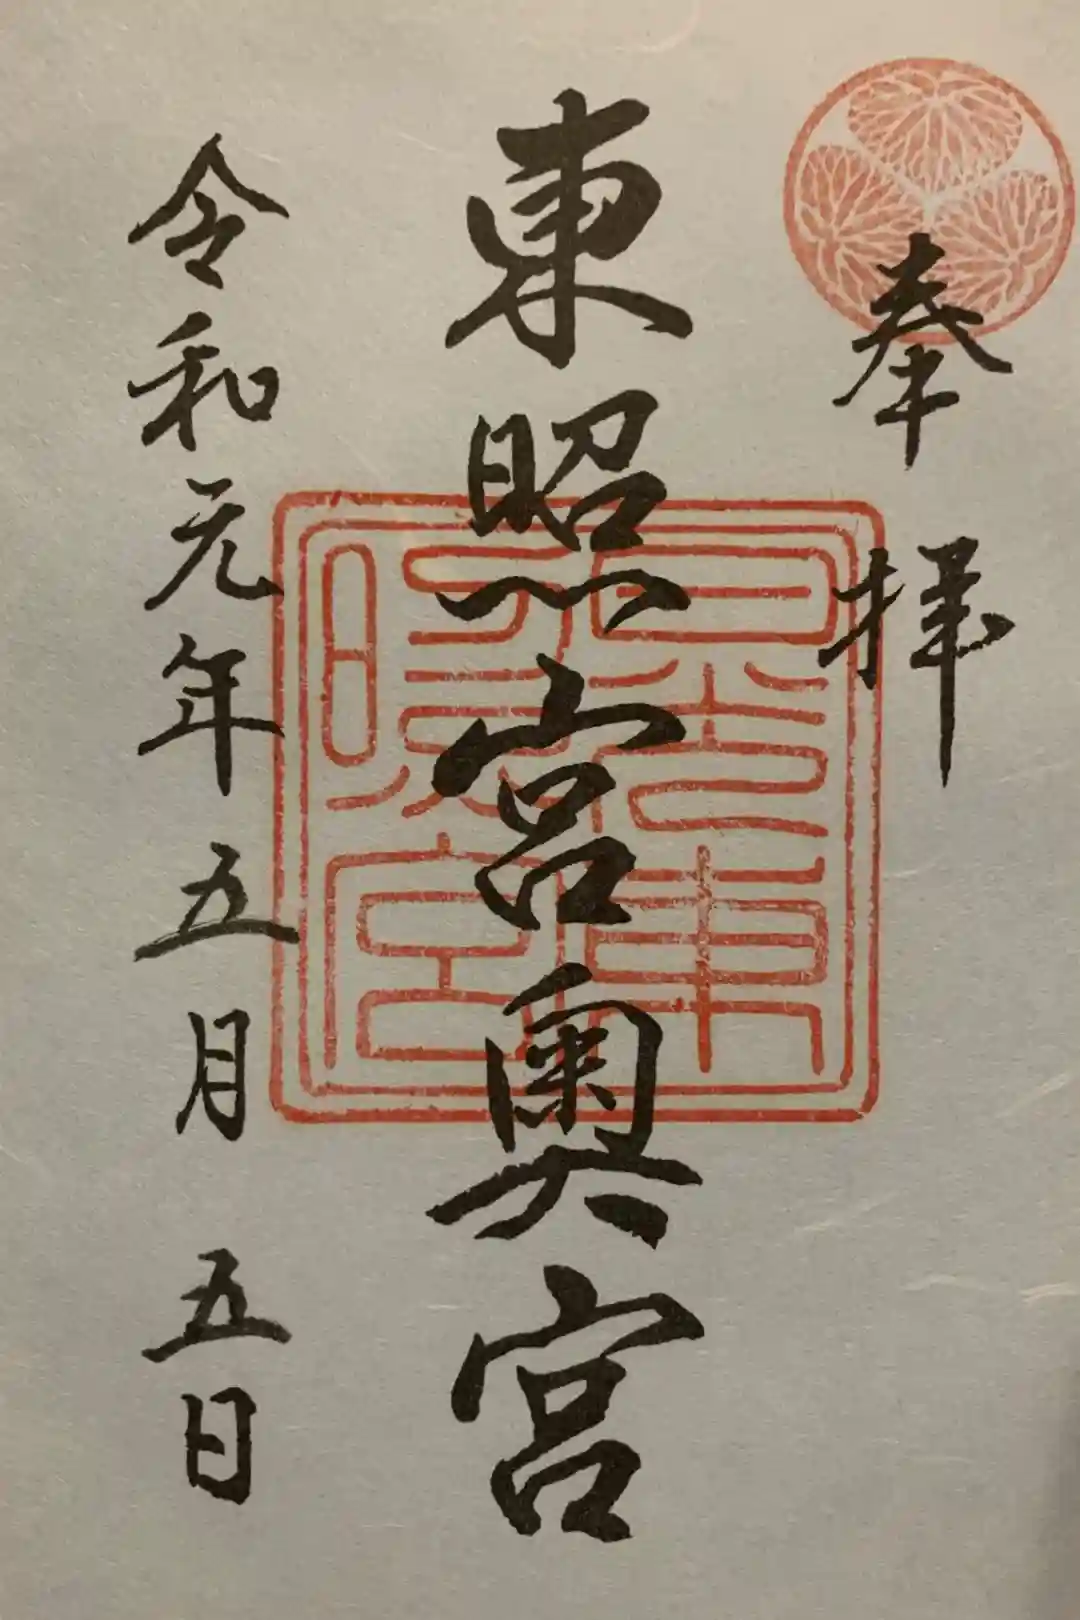 奉拝
東照宮奥宮
令和元年五月五日
日光東照宮